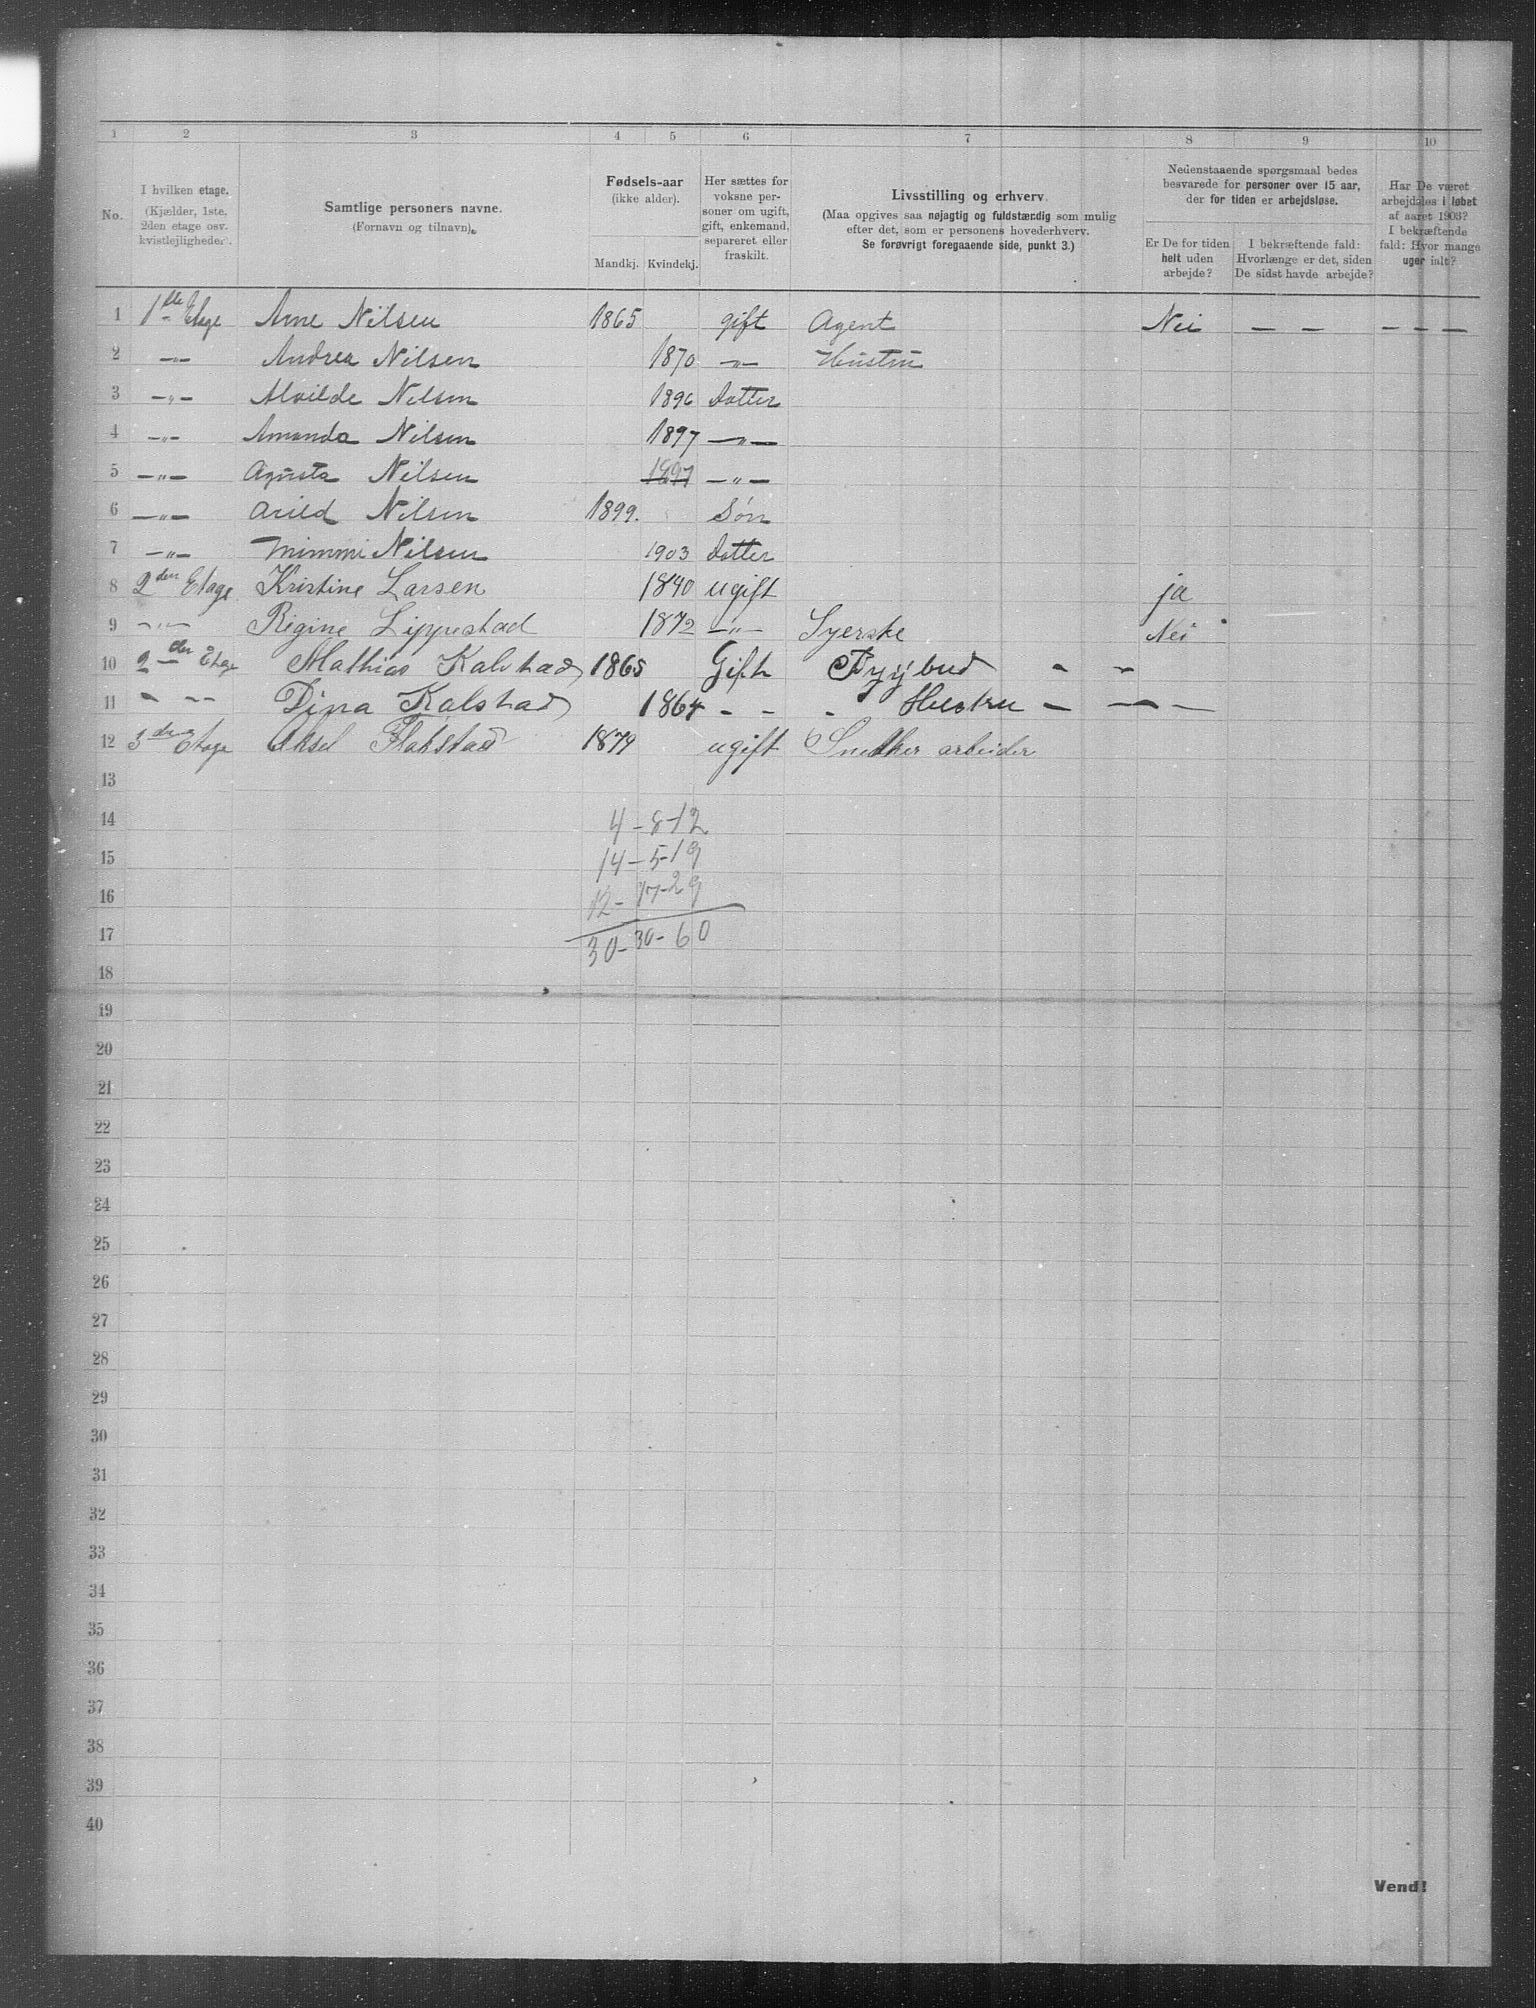 1 2 3 4 5 6 7 8 9 10
No.
I hvilken etage.
(Kjælder, 1ste,
2den etage osv.
kvistlejligheder).
Samtlige personers navne.
(Fornavn og tilnavn).
Fødsels-aar
(ikke alder).
Mandkj. Kvindekj.
Her sættes for
voksne per-
soner om ugift,
gift, enkemand,
separeret eller
fraskilt.
Livsstilling og erhverv.
(Maa opgives saa nøjagtig og fuldstændig som mulig
efter det, som er personens hovederhverv.
Se forøvrigt foregaaende side, punkt 3.)
Nedenstaaende spørgsmaal bedes
besvarede for personer over 15 aar,
der for tiden er arbejdsløse.
Er De for tiden
helt uden
arbejde?
I bekræftende fald:
Hvorlænge er det, siden
De sidst havde arbejde?
Har De været
arbejdsløs i løbet
af aaret 1903?
I bekræftende
fald: Hvor mange
uger ialt?
1 1ste Etage Arne Nilsen 1865 gift Agent Nei — — — — —
2 —„— Andrea Nilsen 1870 —„— Hustru
3 —„— Alvilde Nilsen 1896 Datter
4 —„— Amanda Nilsen 1897 —„—
5 —„— Agusta Nilsen 1897 —„—
6 —„— Arild Nilsen 1899. Søn
7 —„— Mimmi Nilsen 1903 Datter
8 2den Etage Kristine Larsen 1840 ugift ja
9 —„— Rigine Lippestad 1872 —„— Syerske Nei
10 2den Etage Mathias Kalstad 1865 Gift - -
11 - - - Dina Kalstad 1864 - - - Hustru - — —
12 3die Etage Aksel Flakstad 1879 ugift Snedker arbeider
13
14 4-8-12
15 14-5-19
16 12-17-29
17 30-30-60
18
19
20
21
22
23
24
25
26
27
28
29
30
31
32
33
34
35
36
37
38
39
40
Vend!